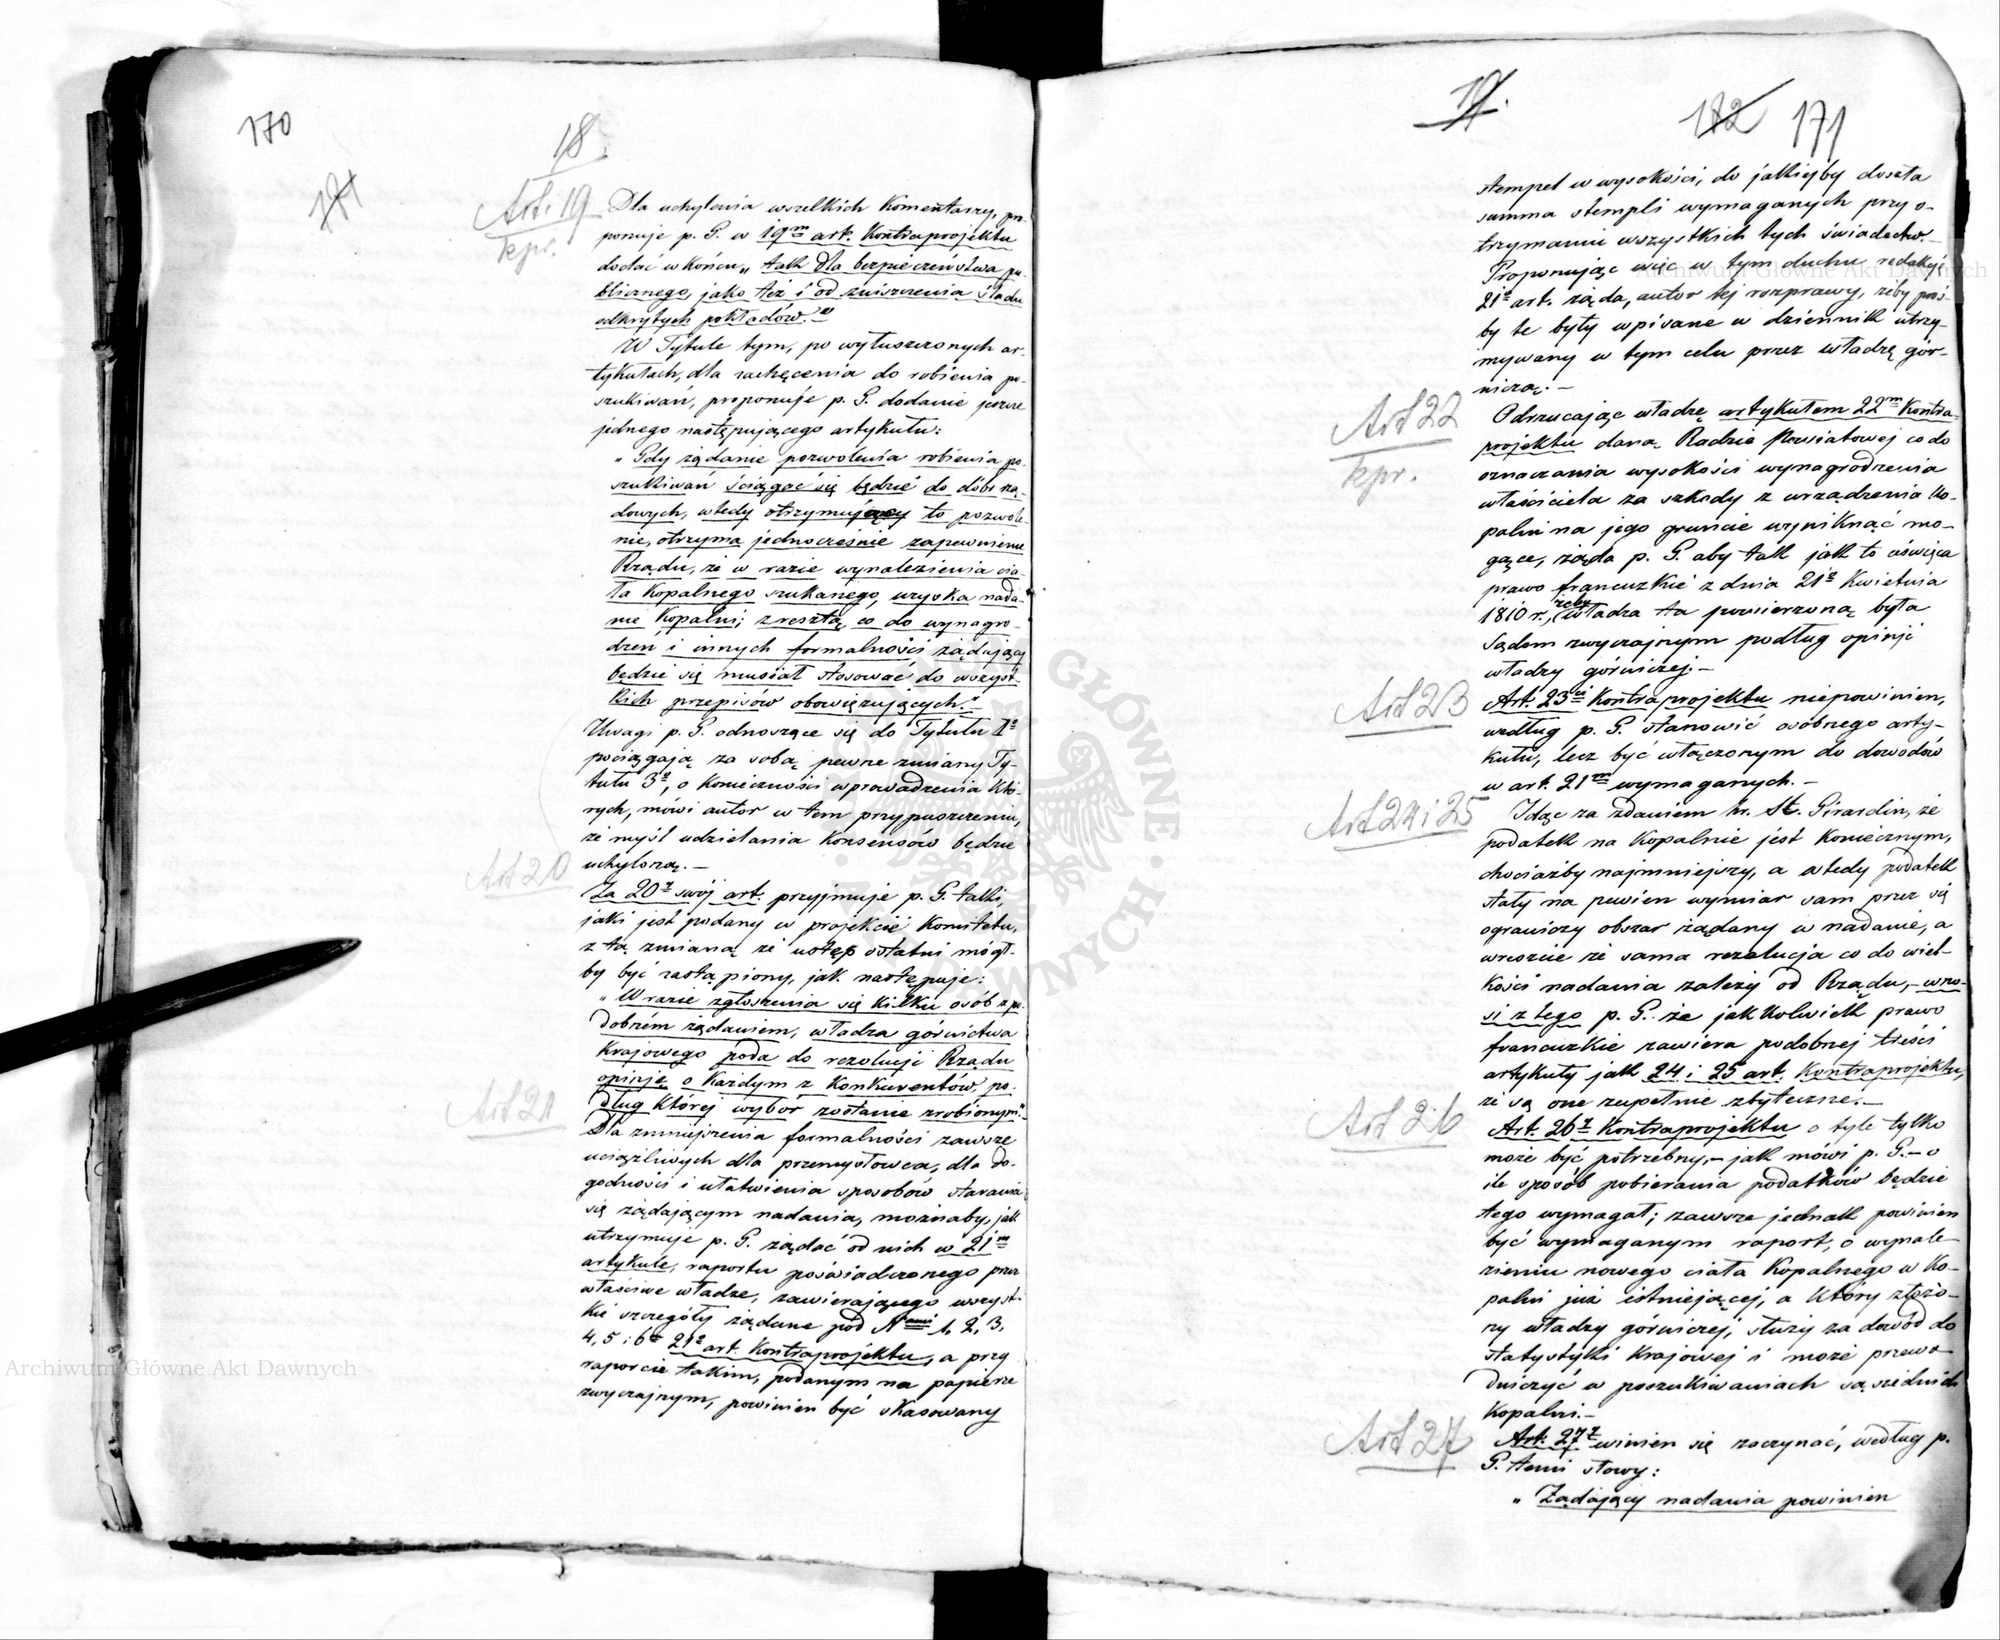 170
171
18
Art. 19
kpr.
Dla uchylenia wszelkich Komentarzy, pro-
ponuje p. G. w 19m art. Kontraprojektu
dodać w końcu „tak dla bezpieczeństwa pu-
blicznego, jako też i od zniszczenia śladu
odkrytych pokładów."
W Tytule tym, po wyłuszczonych ar-
tykułach, dla zachęcenia do robienia po-
szukiwań, proponuje p. G. dodanie jeszcze
jednego następującego artykułu:
„Gdy żądanie pozwolenia robienia po-
szukiwań ściągać się będzie do dóbr rzą-
dowych, wtedy otrzymujący to pozwole-
nie, otrzyma jednocześnie zapewnienie
Rządu, że w razie wynalezienia cia-
ła Kopalnego szukanego, uzyska nada-
nie Kopalni; zresztą, co do wynagro-
dzeń i innych formalności żądający
będzie się musiał stosować do wszyst-
kich przepisów obowięzujących."–
Uwagi p. G. odnoszące się do Tytułu Io
pociągają za sobą pewne zmiany Ty-
tułu 3o, o Konieczności wprowadzenia któ-
rych, mówi autor w tem przypuszczeniu,
że myśl udzielania Konsensów będzie
uchyloną.–
Art 20
Za 20y swój art. przyjmuje p. G. taki,
jaki jest podany w projekcie Komitetu,
z tą zmianą, że ustęp ostatni mógł-
by być zastąpiony, jak następuje:
„W razie zgłoszenia się Kilku osób z po-
dobném żądaniem, władza górnictwa
Krajowego poda do rezolucji Rządu
opinję o Każdym z Konkurentów, po-
dług której wybór zostanie zrobionym."–
Art 21
Dla zmniejszenia formalności zawsze
uciążliwych dla przemysłowca, dla do-
godności i ułatwienia sposobów starania
się żądającym nadania, możnaby, jak
utrzymuje p. G. żądać od nich w 21m
artykule, raportu poświadczonego przez
właściwe władze, zawierającego wszyst-
kie szczegóły żądane pod Nami 1, 2, 3,
4, 5 i 6o 21o art. Kontraprojektu, a przy
raporcie takim, podanym na papierze
zwyczajnym, powinien być skasowany
19.
172 171
stempel w wysokości, do jakiejby doszła
summa stempli wymaganych przy o-
trzymaniu wszystkich tych świadectw.–
Proponując więc w tym duchu redakcję
21o art. żąda, autor tej rozprawy, żeby proś-
by te były wpisane w dziennik utrzy-
mywany w tym celu przez władzę gór-
niczą.–
Art 22
kpr.
Odrzucając władzę artykułem 22m Kontra-
projektu daną Radzie Powiatowej co do
oznaczania wysokości wynagrodzenia
właściciela za szkody z urządzenia Ko-
palni na jego gruncie wyniknąć mo-
gące, żąda p. G. aby tak jak to uświęca
prawo francuzkie z dnia 21o Kwietnia
1810 r., żeby władza ta powierzoną była
Sądom zwyczajnym podług opinji
władzy górniczej.–
Art 23
Art. 23ci Kontraprojektu niepowinien,
według p. G. stanowić osobnego arty-
kułu, lecz być włączonym do dowodów
w art. 21m wymaganych.–
Art 24 i 25
Idąc za zdaniem hr. St. Girardin, że
podatek na Kopalnie jest Koniecznym,
chociażby najmniejszy, a wtedy podatek
stały na pewien wymiar sam przez się
ograniczy obszar żądany w nadanie, a
wreszcie że sama rezolucja co do wiel-
kości nadania zależy od Rządu,– wno-
si z tego p. G. że jakkolwiek prawo
francuzkie zawiera podobnej treści
artykuły jak 24 i 25 art. Kontraprojektu,
że są one zupełnie zbyteczne.–
Art 26
Art. 26y Kontraprojektu o tyle tylko
może być potrzebny,– jak mówi p. G.– o
ile sposób pobierania podatków będzie
tego wymagał; zawsze jednak powinien
być wymaganym raport, o wynale-
zieniu nowego ciała Kopalnego w Ko-
palni już istniejącej, a który złożo-
ny władzy górniczej, służy za dowód do
statystyki Krajowej i może przewo-
dniczyć w poszukiwaniach sąsiednich
Kopalni.–
Art 27
Art. 27y winien się zaczynać, według p.
G. temi słowy:
„Żądający nadania powinien
Archiwum Główne Akt Dawnych
Archiwum Główne Akt Dawnych